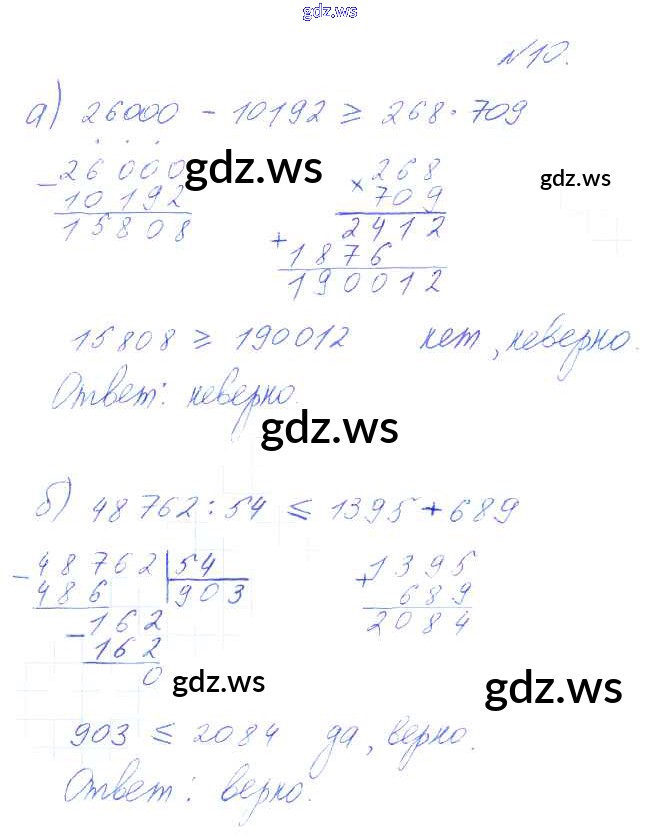 gdz.ws
№10.
а) 26000 - 10192 ≥ 268 · 709
- 26000
10192
15808
× 268
709
2412
+ 1876
190012
gdz.ws
gdz.ws
15808 ≥ 190012 нет, неверно.
Ответ: неверно.
gdz.ws
б) 48762 : 54 ≤ 1395 + 689
- 48762 | 54
486 903
- 162
162
0
+ 1395
689
2084
gdz.ws
gdz.ws
903 ≤ 2084 да, верно.
Ответ: верно.